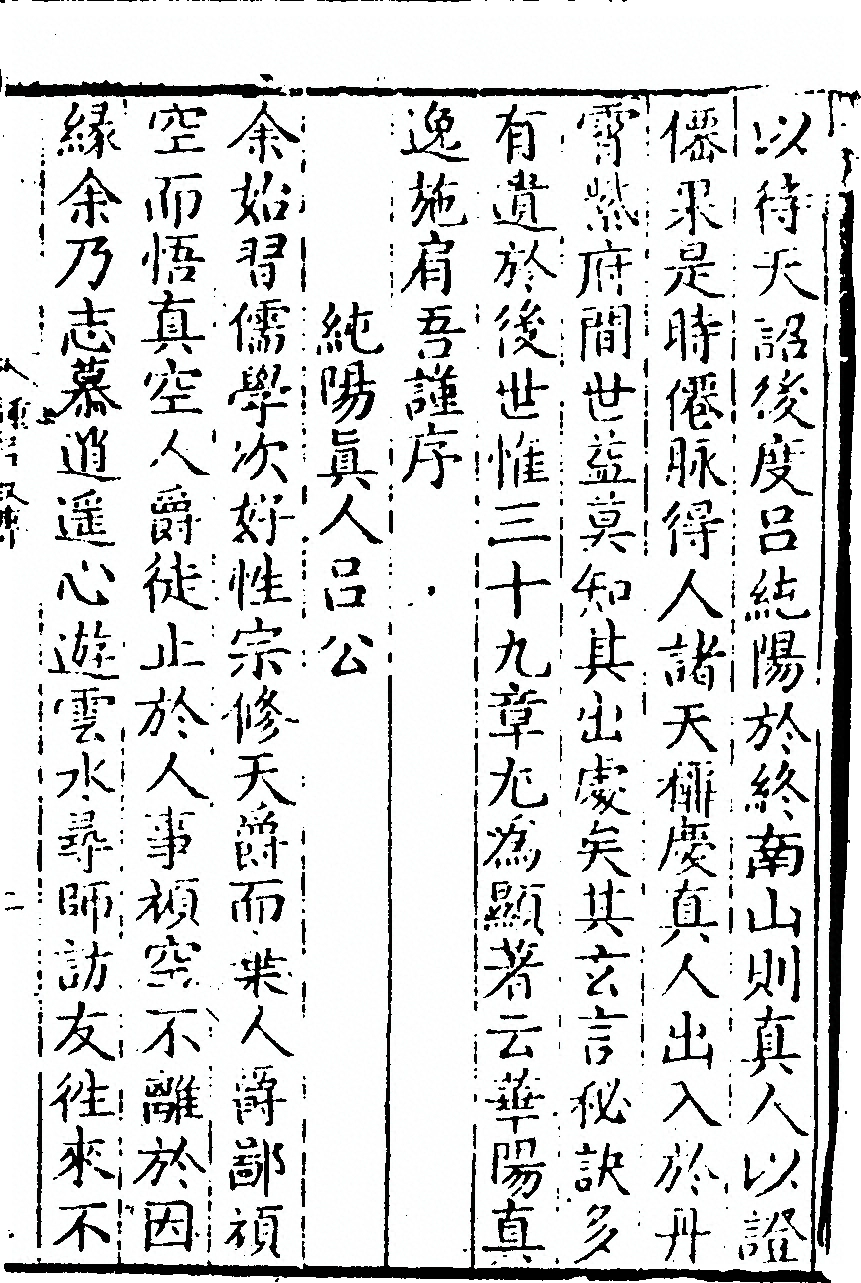 以待天詔後度呂純陽於終南山則真人以證
僊果是時僊脉得人諸天稱慶真人出入於丹
霄紫府間世益莫知其出處矣其玄言秘訣多
有遺於後世惟三十九章尤為顯著云華陽真
逸施肩吾謹序
純陽眞人呂公
余始習儒學次好性宗修天爵而棄人爵鄙頑
空而悟真空人爵徒止於人事頑空不離於因
緣余乃志慕逍遥心遊雲水尋師訪友徃來不
二